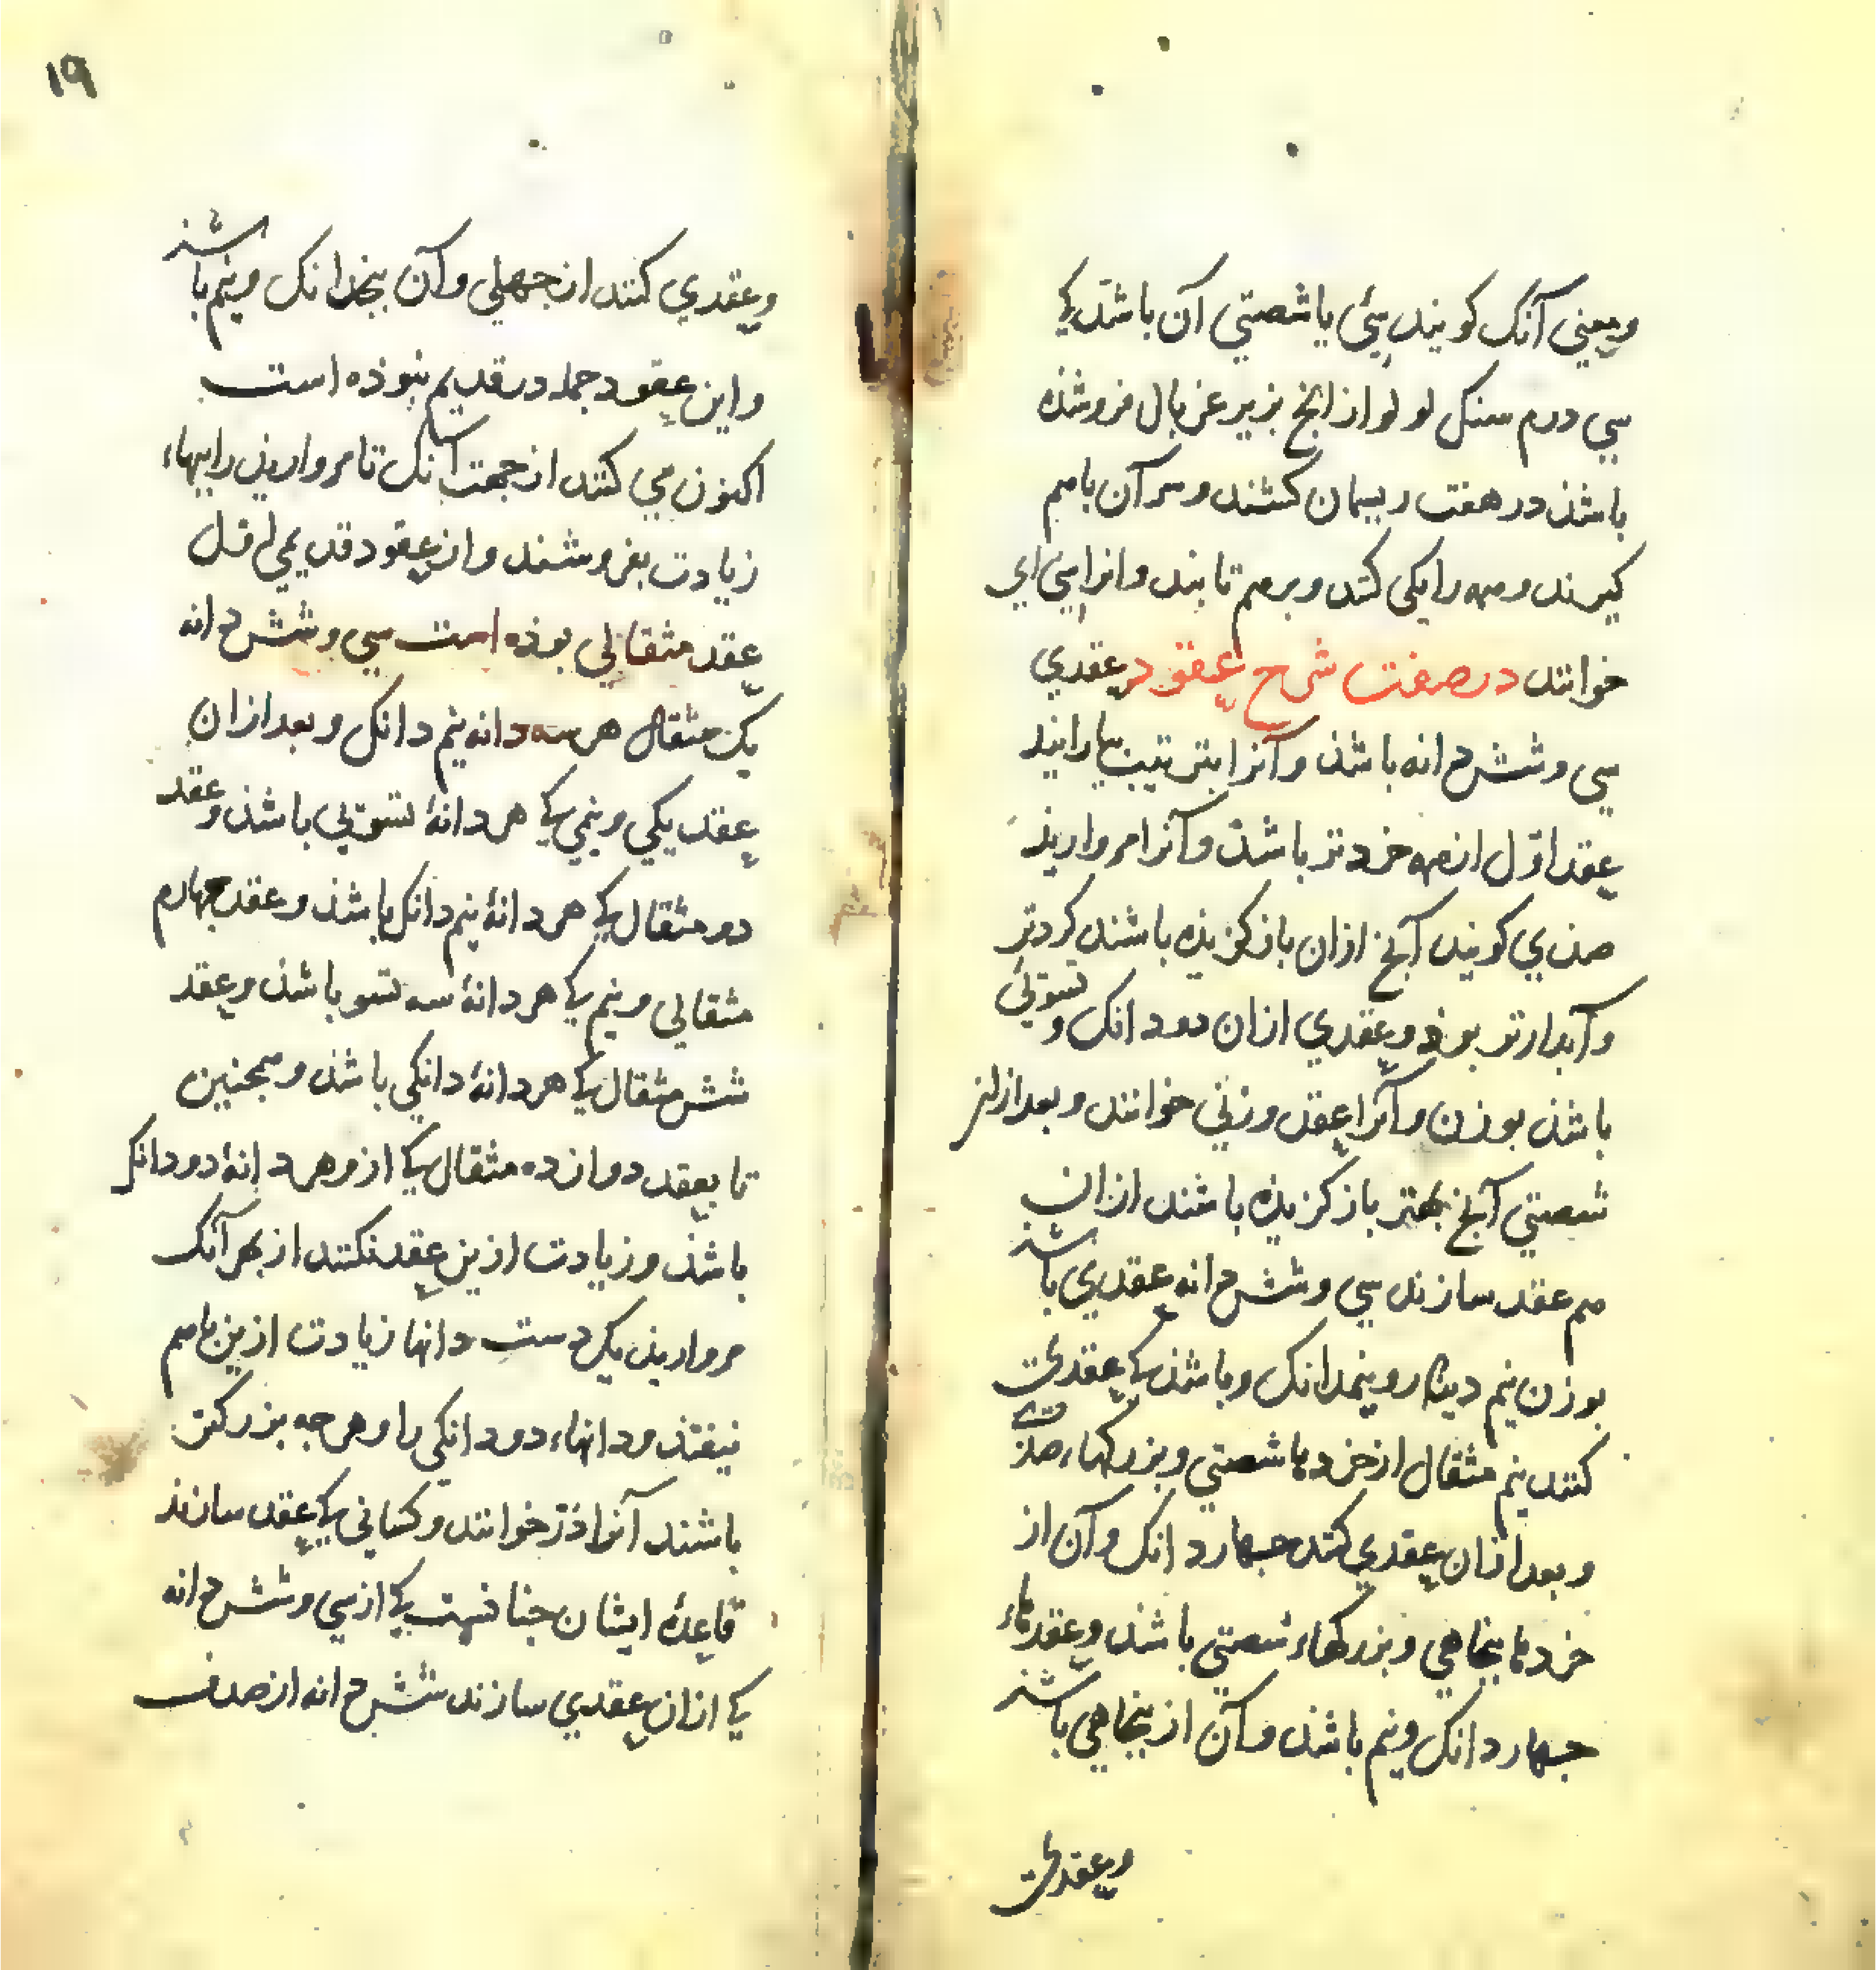 ومعنی آنک کویند سی یا شصتی آن باشد کی
سی درم سنک لولو از آنج بزیر غربال فروشذه
باشذ در هفت ریسمان کشند و سر آن با هم
کیرند و همه را یکی کنند و بر هم تابند و انرا سی ای
خوانند در صفت شرح عقود عقدی
سی و شش دانه باشذ و آنرا بترتیب بیارایند
عقد اوّل از همه خردتر باشذ و آنرا مروارید
صدی کویند آنج ازان باز کزیذه باشند کردتر
و آبدارتر بوذ و عقدی ازان دو دانک و تسوئی
باشذ بوزن و آنرا عقد وزنی خوانند و بعد ازان
شصتی آنج بهتر باز کزیذه باشند ازان
هم عقد سازند سی و شش دانه عقدی باشذ
بوزن نیم دینار و نیمدانک و باشذ کی عقدی
کنند نیم مثقال از خردها شصتی و بزرکهاء صدی
و بعد ازان عقدی کنند جهار دانک و آن از
خردها بنجاهی و بزرکهاء شصتی باشذ و عقدهاء
جهار دانک و نیم باشذ و آن از بنجاهی باشذ
وعقدی
۱۹
وعقدی کنند از جهلی و آن بنج دانک و نیم باشذ
و این عقود جمله در قدیم نبوذه است
اکنون می کنند از جهت آنک تا مروارید را ببهاء
زیادت بفروشند و از عقود قدیمی اول
عقد مثقالی بوذه است سی و شش دانه
یک مثقال هر سه دانه نیم دانک و بعد ازان
عقد یکی و نیمی کی هر دانهٔ تسوئی باشذ و عقد
دو مثقال کی هر دانهٔ نیم دانک باشذ و عقد جهارم
مثقالی و نیم کی هر دانهٔ سه تسو باشذ و عقد
شش مثقال کی هر دانهٔ دانکی باشذ و همجنین
تا بعقد دوازده مثقال کی ازو هر دانهٔ دو دانک
باشذ و زیادت ازین عقد نکنند از بهر آنک
مروارید یک دست دانها زیادت ازین با هم
نیفتذ و دانهاء دو دانکی را و هرجه بزرکتر
باشند آنرا دُرّ خوانند و کسانی کی عقد سازند
قاعدهٔ ایشان جنانست کی از سی و شش دانه
کی ازان عقدی سازند شش دانه از صدف